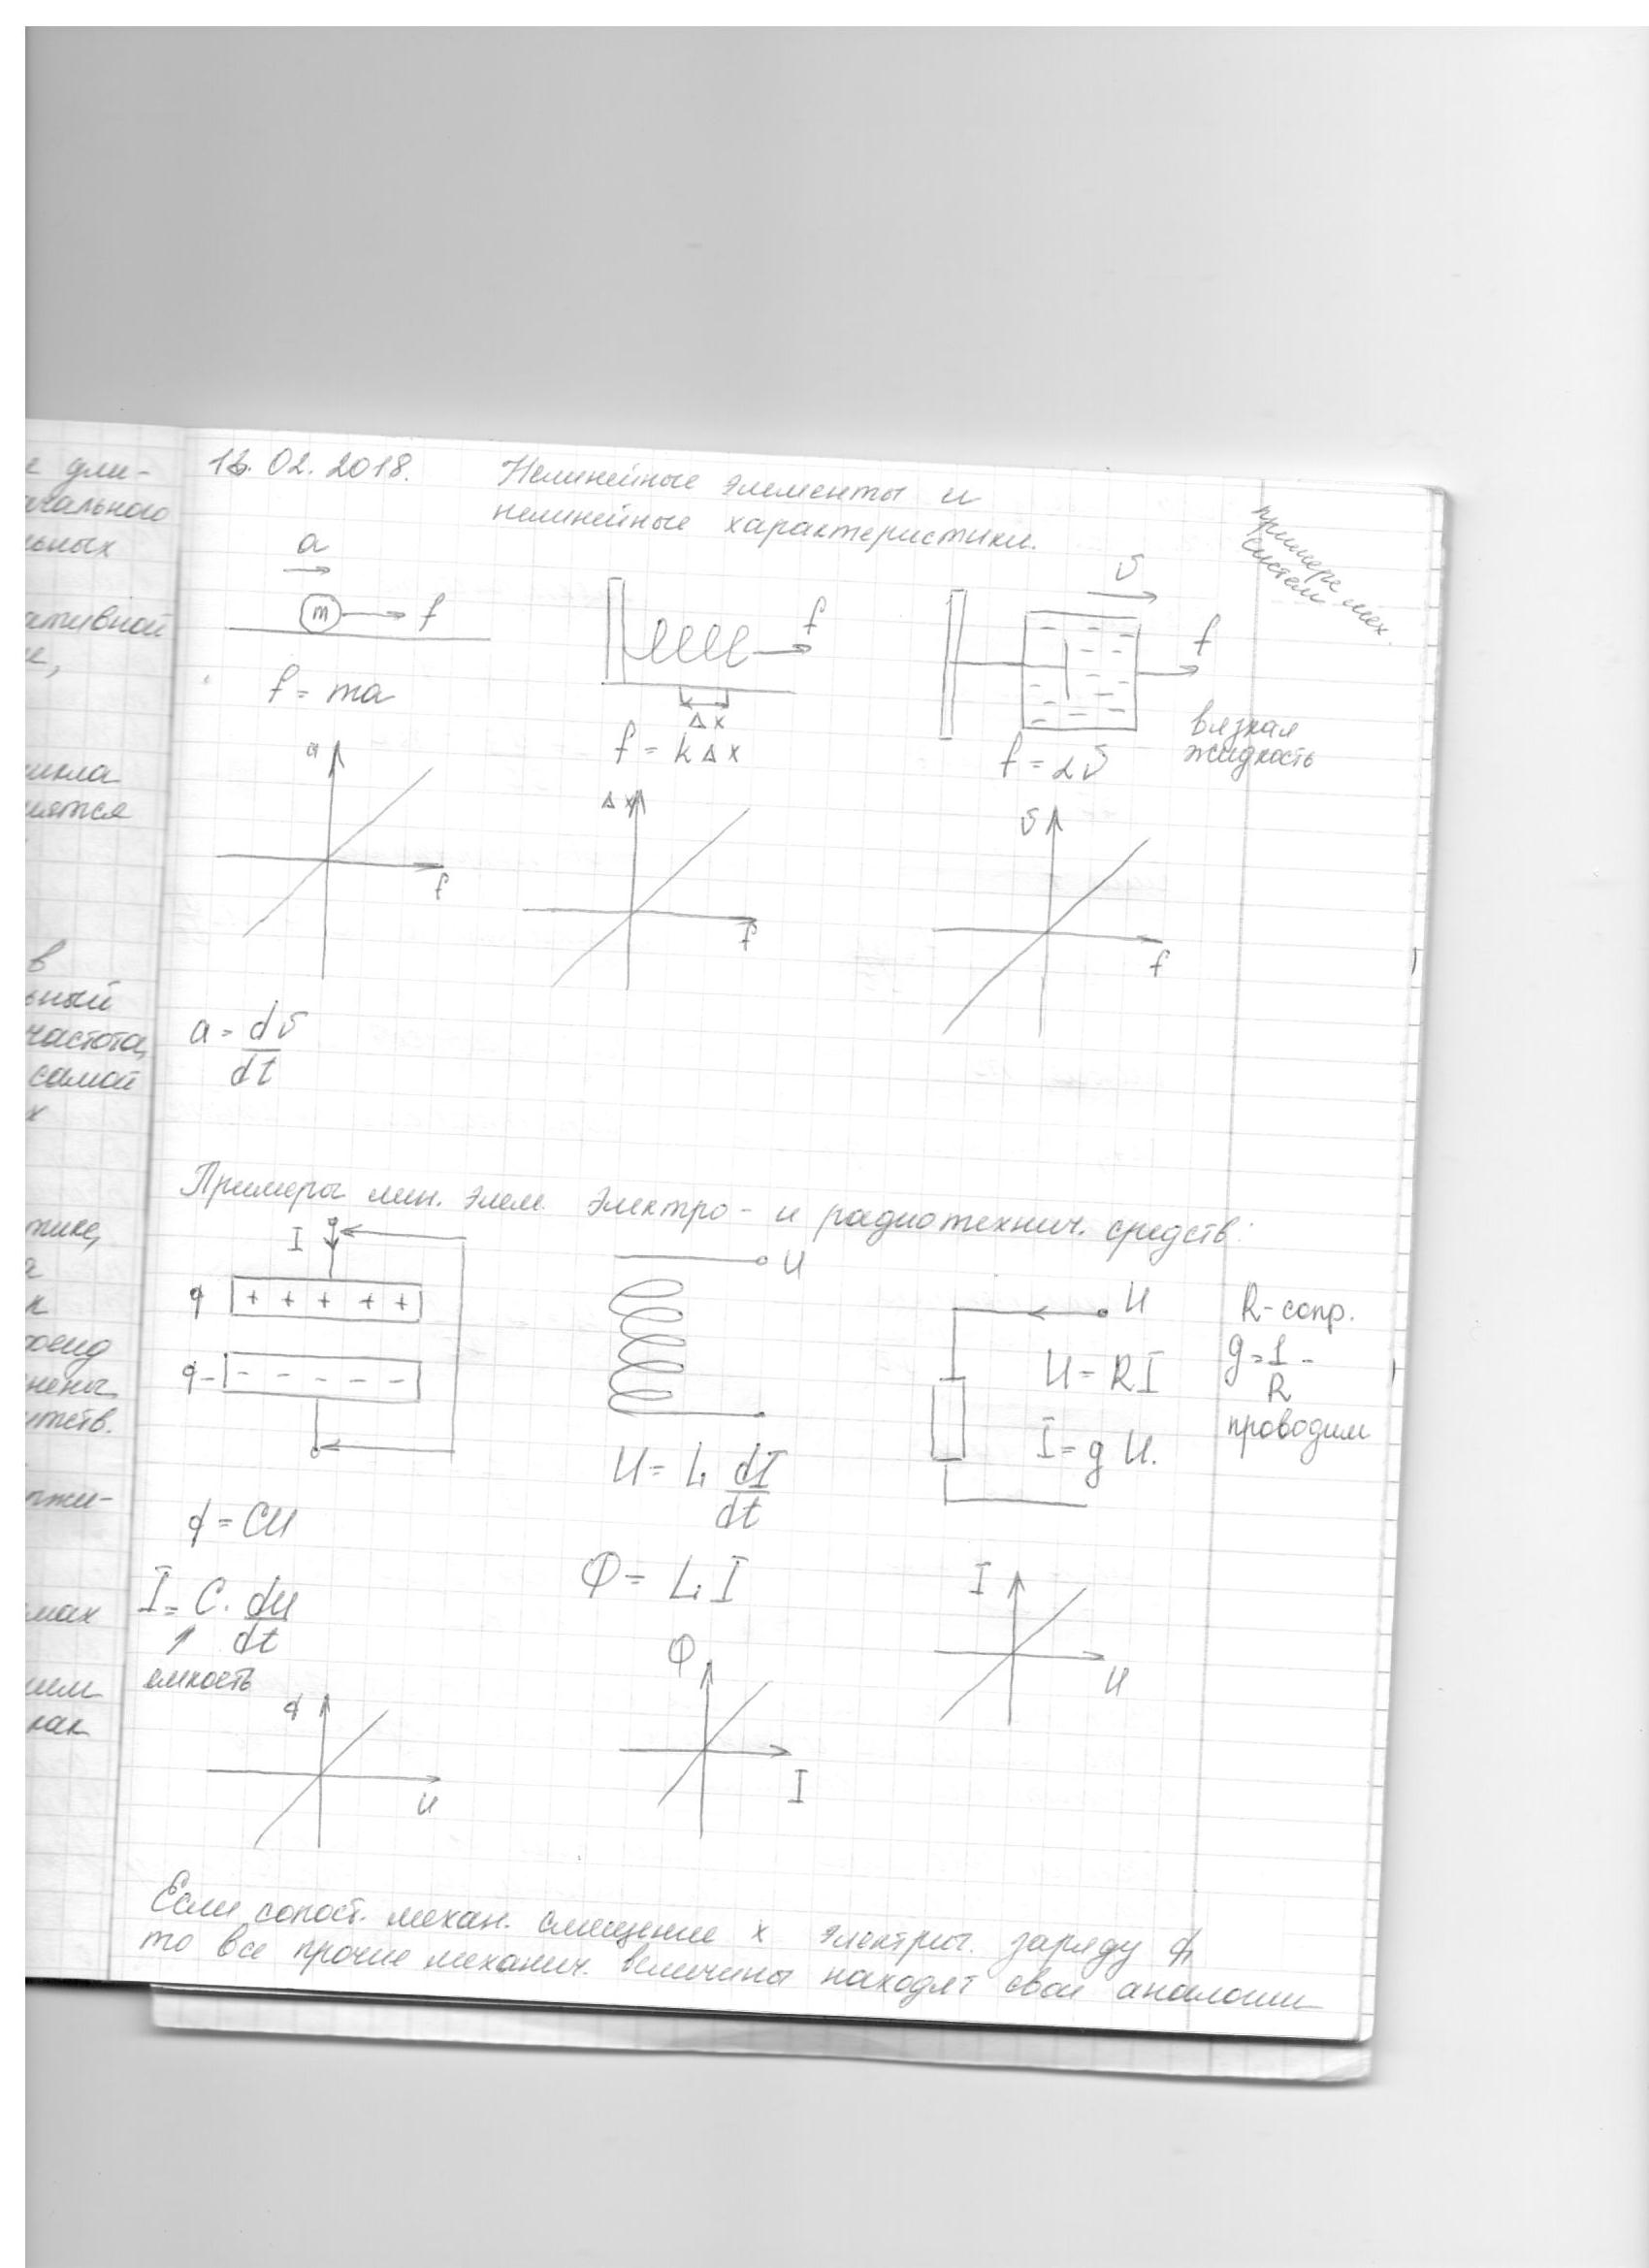 е дли-
ачального
ьных
ативной
икла
иятся
в
ьный
частота,
самой
х
тике,
а
к
нены
жи-
мах
ием
как
02. 2018.
Нелинейные элементы и
нелинейные характеристики.
примеры мех.
систем
a
m
f
f = ma
f
Δx
f = kΔx
υ
f
вязкая
жидкость
f = αυ
a
f
Δx
f
υ
f
a = dυ/dt
Примеры лин. элем. электро- и радиотехнич. средств:
I
q + + + + +
q- - - - - -
q = CU
I = C · dU/dt
↑
емкость
q
U
U
U = L dI/dt
Φ = L I
Φ
I
U
U = RI
I = gU.
R - сопр.
g = 1/R -
проводим
I
U
Если сопост. механ. смещение x электрич. заряду q,
то все прочие механич. величины находят свои аналогии